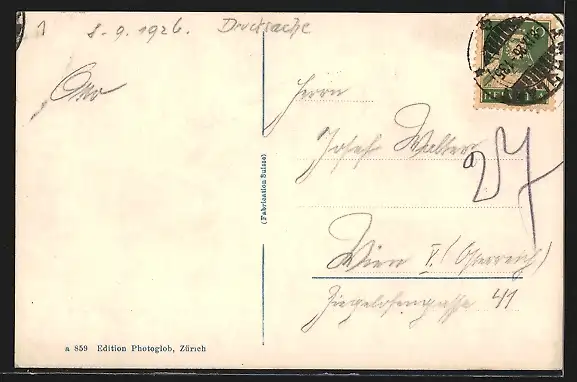 1 8-9.1926. Drucksache
Otto
Herrn
Josef Walter
27
Wien V. (Österreich)
Ziegelofengasse 41
(Fabrication Suisse)
a 859 Edition Photoglob, Zürich
HELVETIA